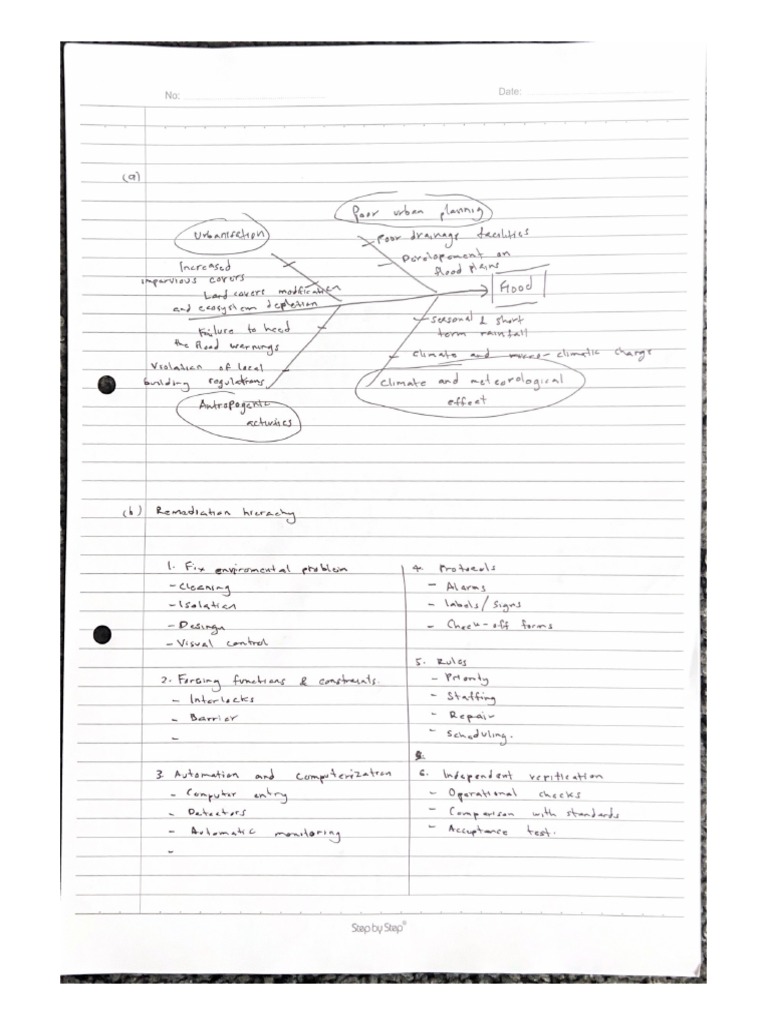 No:
Date:
(a)
Poor urban plannig
Urbanisation
Poor drainage facilities
Developement on
flood plains
Increased
impervious covers
Land covers modfication
and ecosystem depletion
Flood
Failure to heed
the flood warnings
seasonal & short
term rainfall
Violation of local
building regulations
climate and micro-climatic change
Climate and meteorological
effect
Antropogenic
activities
(b) Remediation hierachy
1. Fix enviromental problem
- Cleaning
- Isolation
- Design
- Visual control
2. Forcing functions & constraints.
- Interlocks
- Barrier
-
3. Automation and Computerization
- Computer entry
- Detectors
- Automatic monitoring
-
4. Protocols
- Alarms
- labels/signs
- Check-off forms
5. Rules
- Priority
- Staffing
- Repair
- Scheduling.
6. Independent verification
- Operational checks
- Comparison with standards
- Acceptance test.
Step by Step®